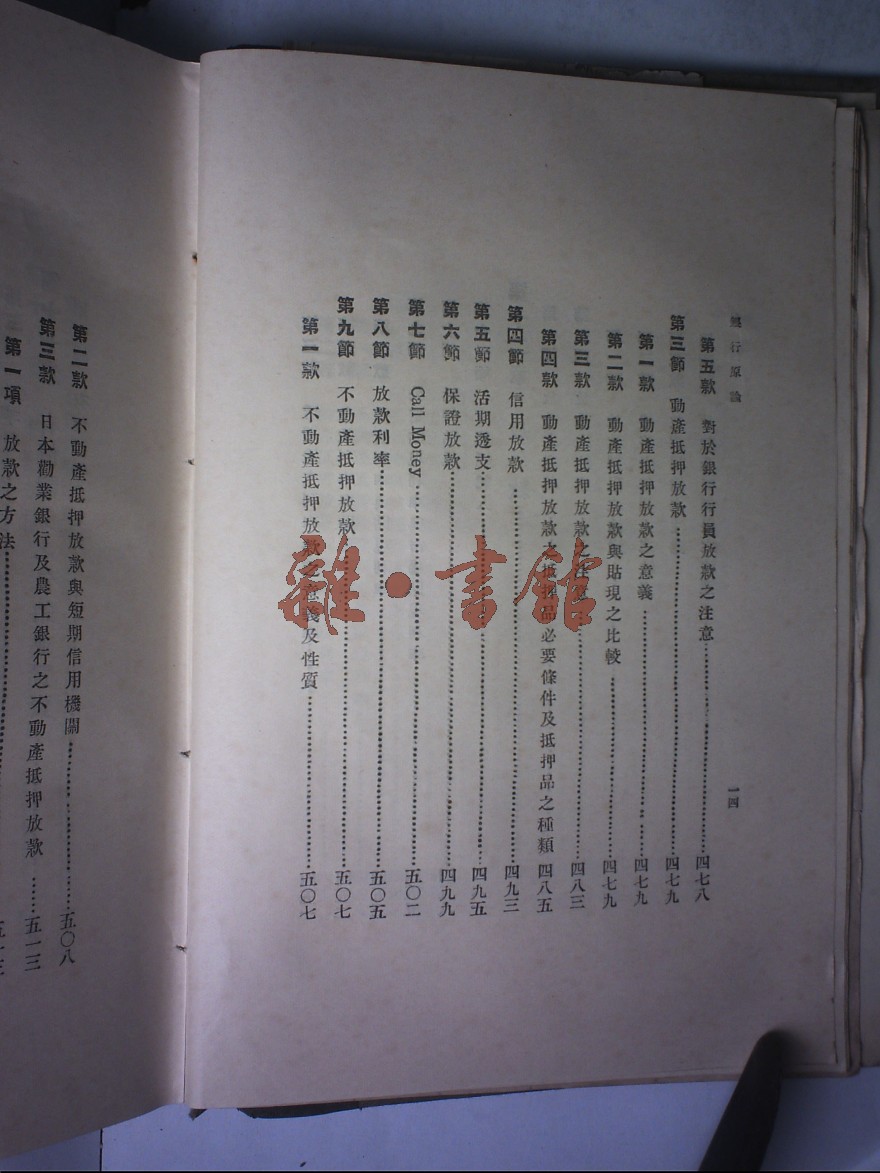 銀行原論
一四
第五款 對於銀行行員放款之注意……四七八
第三節 動產抵押放款……四七九
第一款 動產抵押放款之意義……四七九
第二款 動產抵押放款與貼現之比較……四七九
第三款 動產抵押放款之注意……四八三
第四款 動產抵押放款之抵押品必要條件及抵押品之種類 四八五
第四節 信用放款……四九三
第五節 活期透支……四九五
第六節 保證放款……四九九
第七節 Call Money……五〇二
第八節 放款利率……五〇五
第九節 不動產抵押放款……五〇七
第一款 不動產抵押放款之意義及性質……五〇七
第二款 不動產抵押放款與短期信用機關……五〇八
第三款 日本勸業銀行及農工銀行之不動產抵押放款……五一三
第一項 放款之方法……
雜·書館